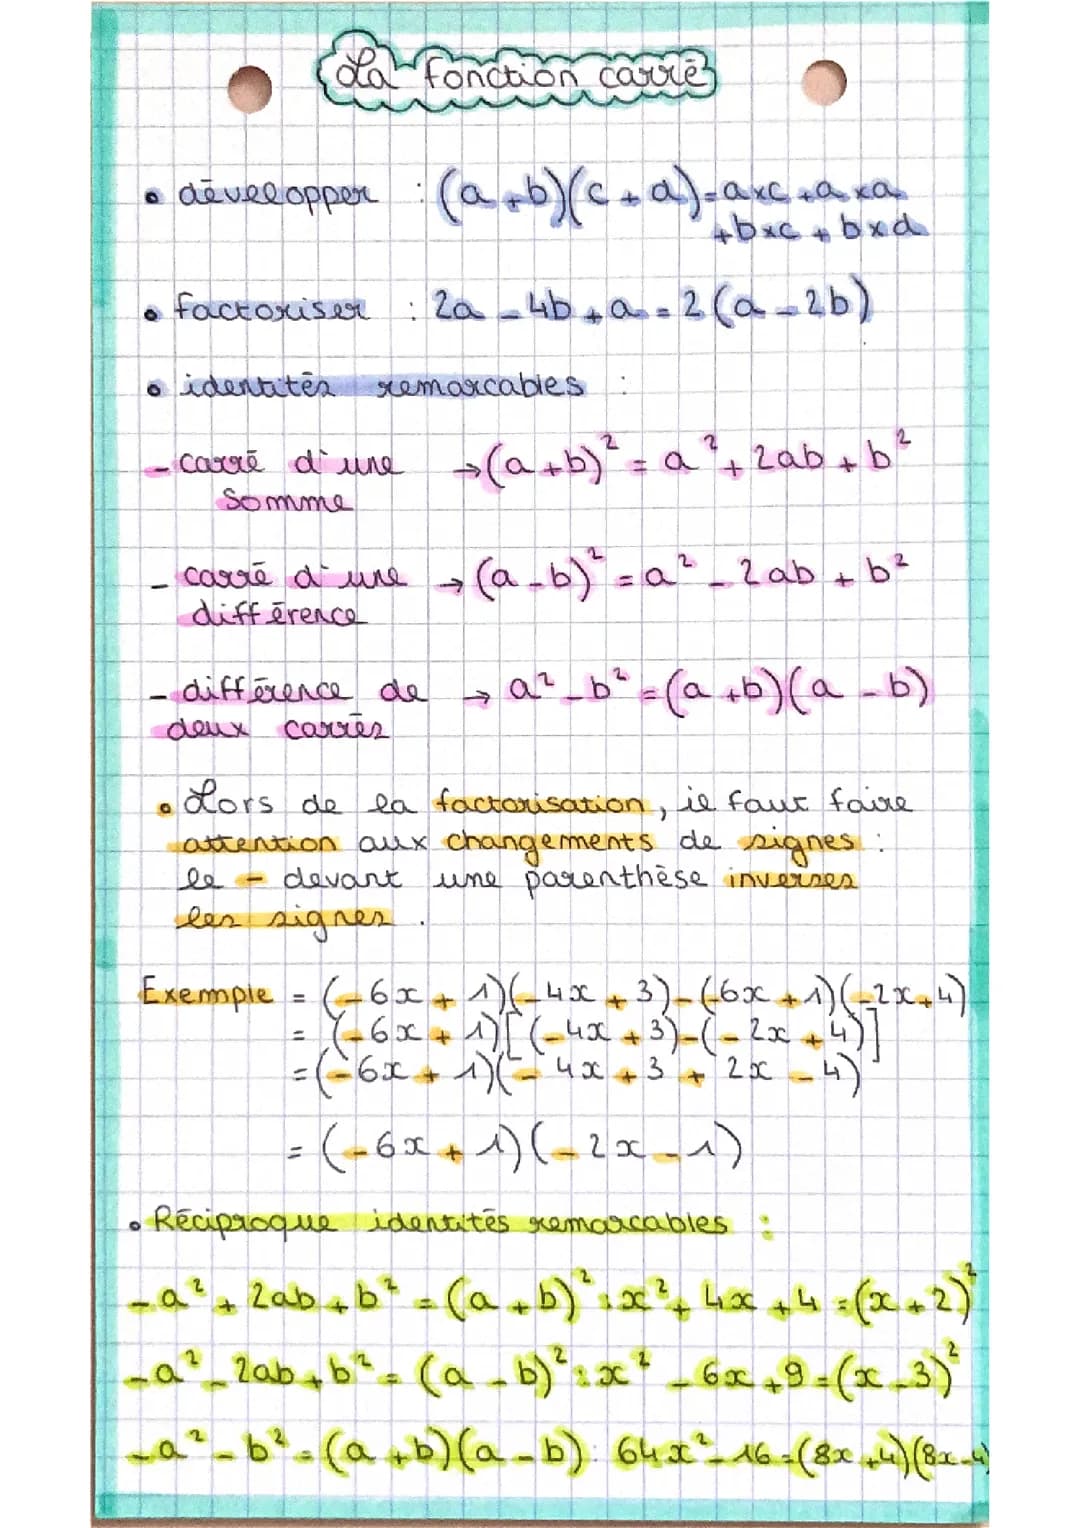 La fonction carré
• développer : (a+b)(c+d)=axc+axd
+bxc+bxd
• factoriser : 2a-4b+a=2(a-2b)
• identités remarcables :
- carré d'une → (a+b)² = a²+2ab+b²
somme
- carré d'une → (a-b)² = a²-2ab+b²
différence
- différence de → a²-b²=(a+b)(a-b)
deux carrés
• Lors de la factorisation, il faut faire
attention aux changements de signes :
le - devant une parenthèse inverses
les signes.
Exemple = (-6x+1)(-4x+3)-(-6x+1)(-2x+4)
= (-6x+1)[(-4x+3)-(-2x+4)]
=(-6x+1)(-4x+3+2x-4)
= (-6x+1)(-2x-1)
• Réciproque identités remarcables :
-a²+2ab+b²=(a+b)² : x²+4x+4=(x+2)²
-a²-2ab+b²=(a-b)² : x²-6x+9=(x-3)²
-a²-b²=(a+b)(a-b) : 64x²-16=(8x+4)(8x-4)